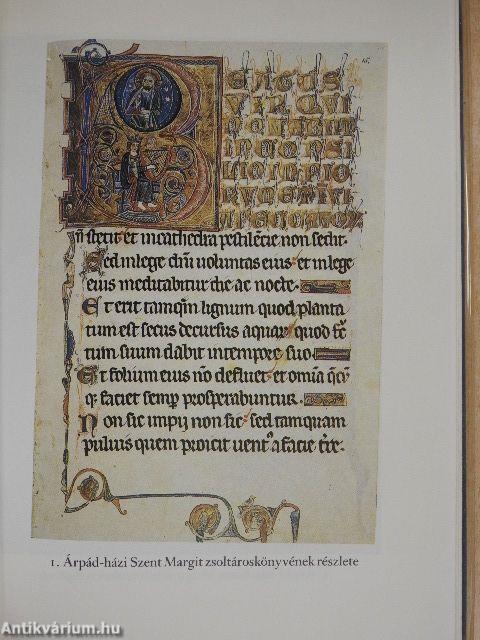 EATUS
VIR QVI
stetit et incathedra pestilēcie non sedit.
Sed inlege dn̄i voluntas eius et inlege
eius meditabitur die ac nocte.
Et erit tamqm̄ lignum quod planta
tum est secus decursus aquar. quod
tum suum dabit intempore suo.
Et folium eius nō defluet et omīa
faciet semp prosperabuntur.
Non sic impij non sic sed tamquam
puluis quem proicit a facie
1. Árpád-házi Szent Margit zsoltároskönyvének részlete
Antikvárium.hu